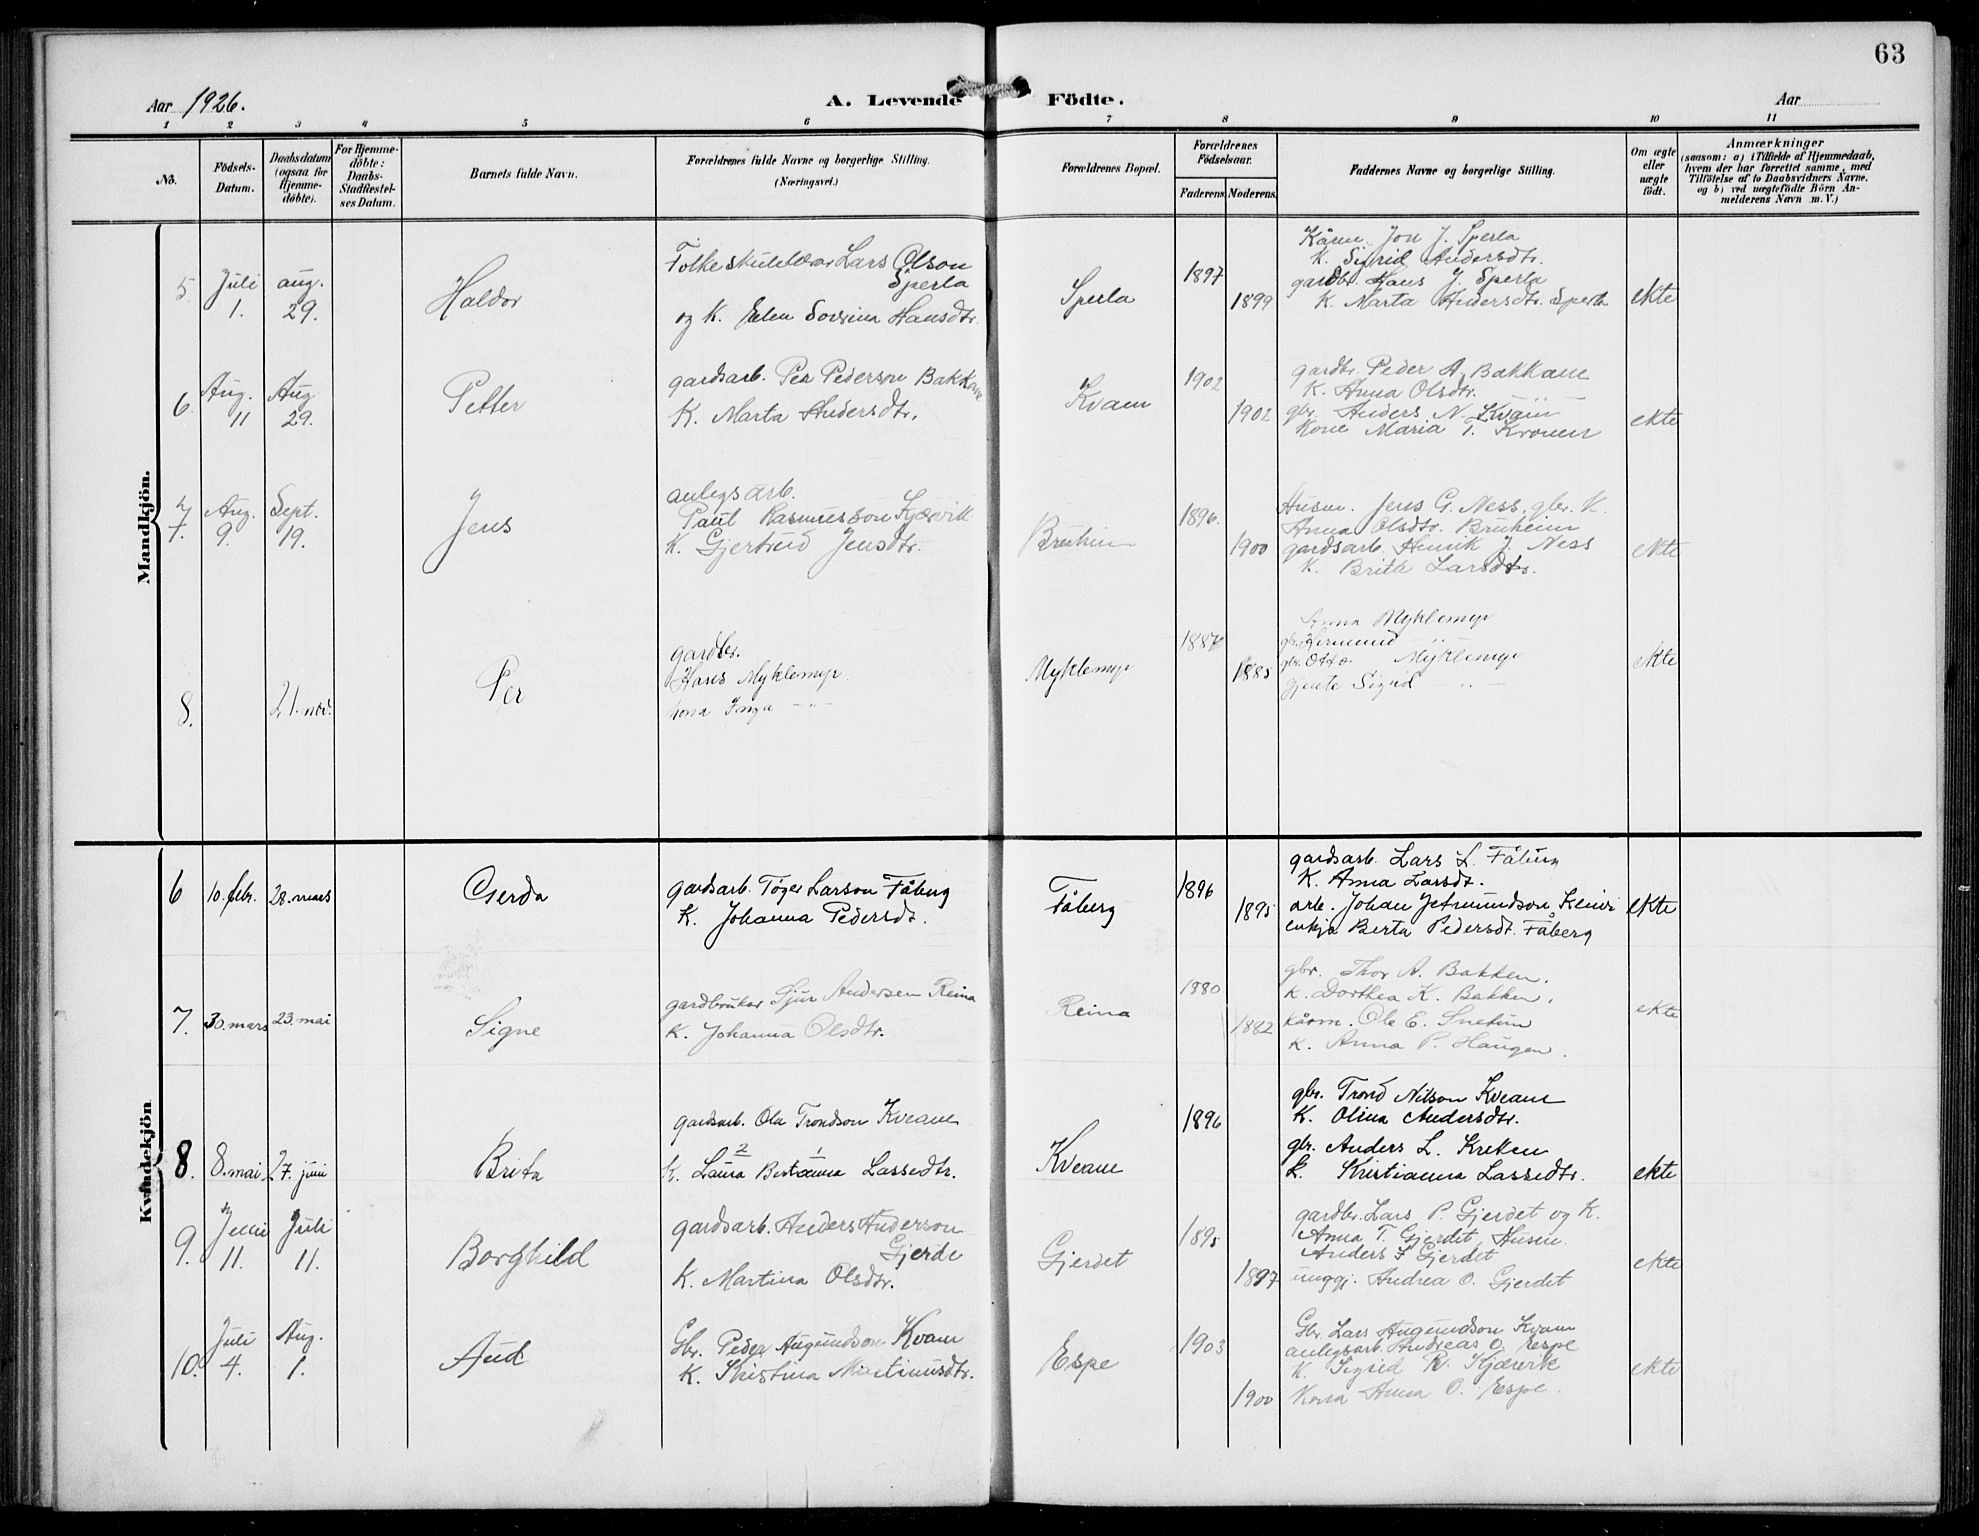 63
Aar 1926.
A. Levende Födte.
Aar
1 2 3 4 5 6 7 8 9 10 11
No.
Födsels-Datum.
Daabsdatum (ogsaa for Hjemme-döbte).
For Hjemme-döbte: Daabs-Stadfæstel-ses Datum.
Barnets fulde Navn.
Forældrenes fulde Navne og borgerlige Stilling.
(Næringsvei.)
Forældrenes Bopæl.
Forældrenes Födselsaar.
Faderens. Moderens.
Faddernes Navne og borgerlige Stilling.
Om ægte eller uægte födt.
Anmærkninger
(saasom: a) i Tilfælde af Hjemmedaab, hvem der har forrettet samme, med Tilföielse af to Daabsvidners Navne, og b) ved uægtefödte Börn An-melderens Navn m. V.)
Mandkjön.
5. Juli 1. aug. 29. Haldor
Folkeskulelærar Lars Olson
Sperla
og K. Elen Hansdtr.
Sperla 1897 1899
Kårm. Jon J. Sperla
K. Sigrid Andersdtr.
gardbr. Hans J. Sperla
K. Marta Andersdtr. Sperla
ekte
6. Aug. 11 Aug 29. Petter
gardsarb. Per Pederson Bakkane
K. Marta Andersdtr.
Kvam 1902 1902
gardbr. Peder A. Bakkane
K. Anna Olsdtr.
gbr. Anders N. Kvam
Kone Maria T. Kvamen
ekte
7. Aug. 9. Sept. 19. Jens
anlegsarb.
Paul Rasmusson Kjærvik
K. Gjertrud Jensdtr.
Bruheim 1896. 1900
Husm. Jens G. Ness, gbr. K.
Anna Olsdtr. Bruheim
gardsarb. Henrik J. Ness
K. Brita Larsdtr.
ekte
8. 21. nov. Per
gardbr.
Hans Myklemyr
kona Inga -"-
Myklemyr 1885
Anna Myklemyr
gbr.
gbr. Otto Myklemyr
gjente Sigrid -"-
ekte
Kvindekjön
6 10. febr. 28. mars Gerda
gardsarb. Tøger Larson Fåberg
K. Johanna Pedersdt.
Fåberg 1896 1895
gardsarb. Lars L. Fåberg
K. Anna Larsdt.
arb. Johan
enkja Berta Pedersdt. Fåberg
ekte
7. 30. mars 23. mai Signe
gardbruker Sjur Andersen Reina
K. Johanna Olsdtr.
Reina 1880 1882
gbr. Thor A. Bakken.
K. Dorthea K. Bakken.
kårm. Ole E. Snetun
K. Anna P. Haugen.
ekte
8. 8. mai 27. juni Brita
gardsarb. Ola Trondson Kveane
2 1
K. Laura Bertanna Lassedtr.
Kveane 1896
gbr. Trond Nilson Kveane
K. Olina Andersdtr.
gbr. Anders L. Kreken
k. Kristianna Lassedtr.
ekte
9. Juni 11. Juli 11. Borghild
gardsarb. Anders Anderson
Gjerde
K. Martina Olsdtr.
Gjerdet 1895 1897
gardbr. Lars P. Gjerdet og K.
Anna T. Gjerdet, Husm.
Anders Gjerdet
unggj. Andrea O. Gjerdet
ekte
10. Juli 4. Aug. 1. Aud
Gbr. Peder Augundson Kvam
K. Kristina Martinusdtr.
Espe 1903 1900
Gbr. Lars Augundson Kvam
anlegsarb. Andreas O. Espe
K. Sigrid R. Kjærvik
Kona Anna O. Espe.
ekte